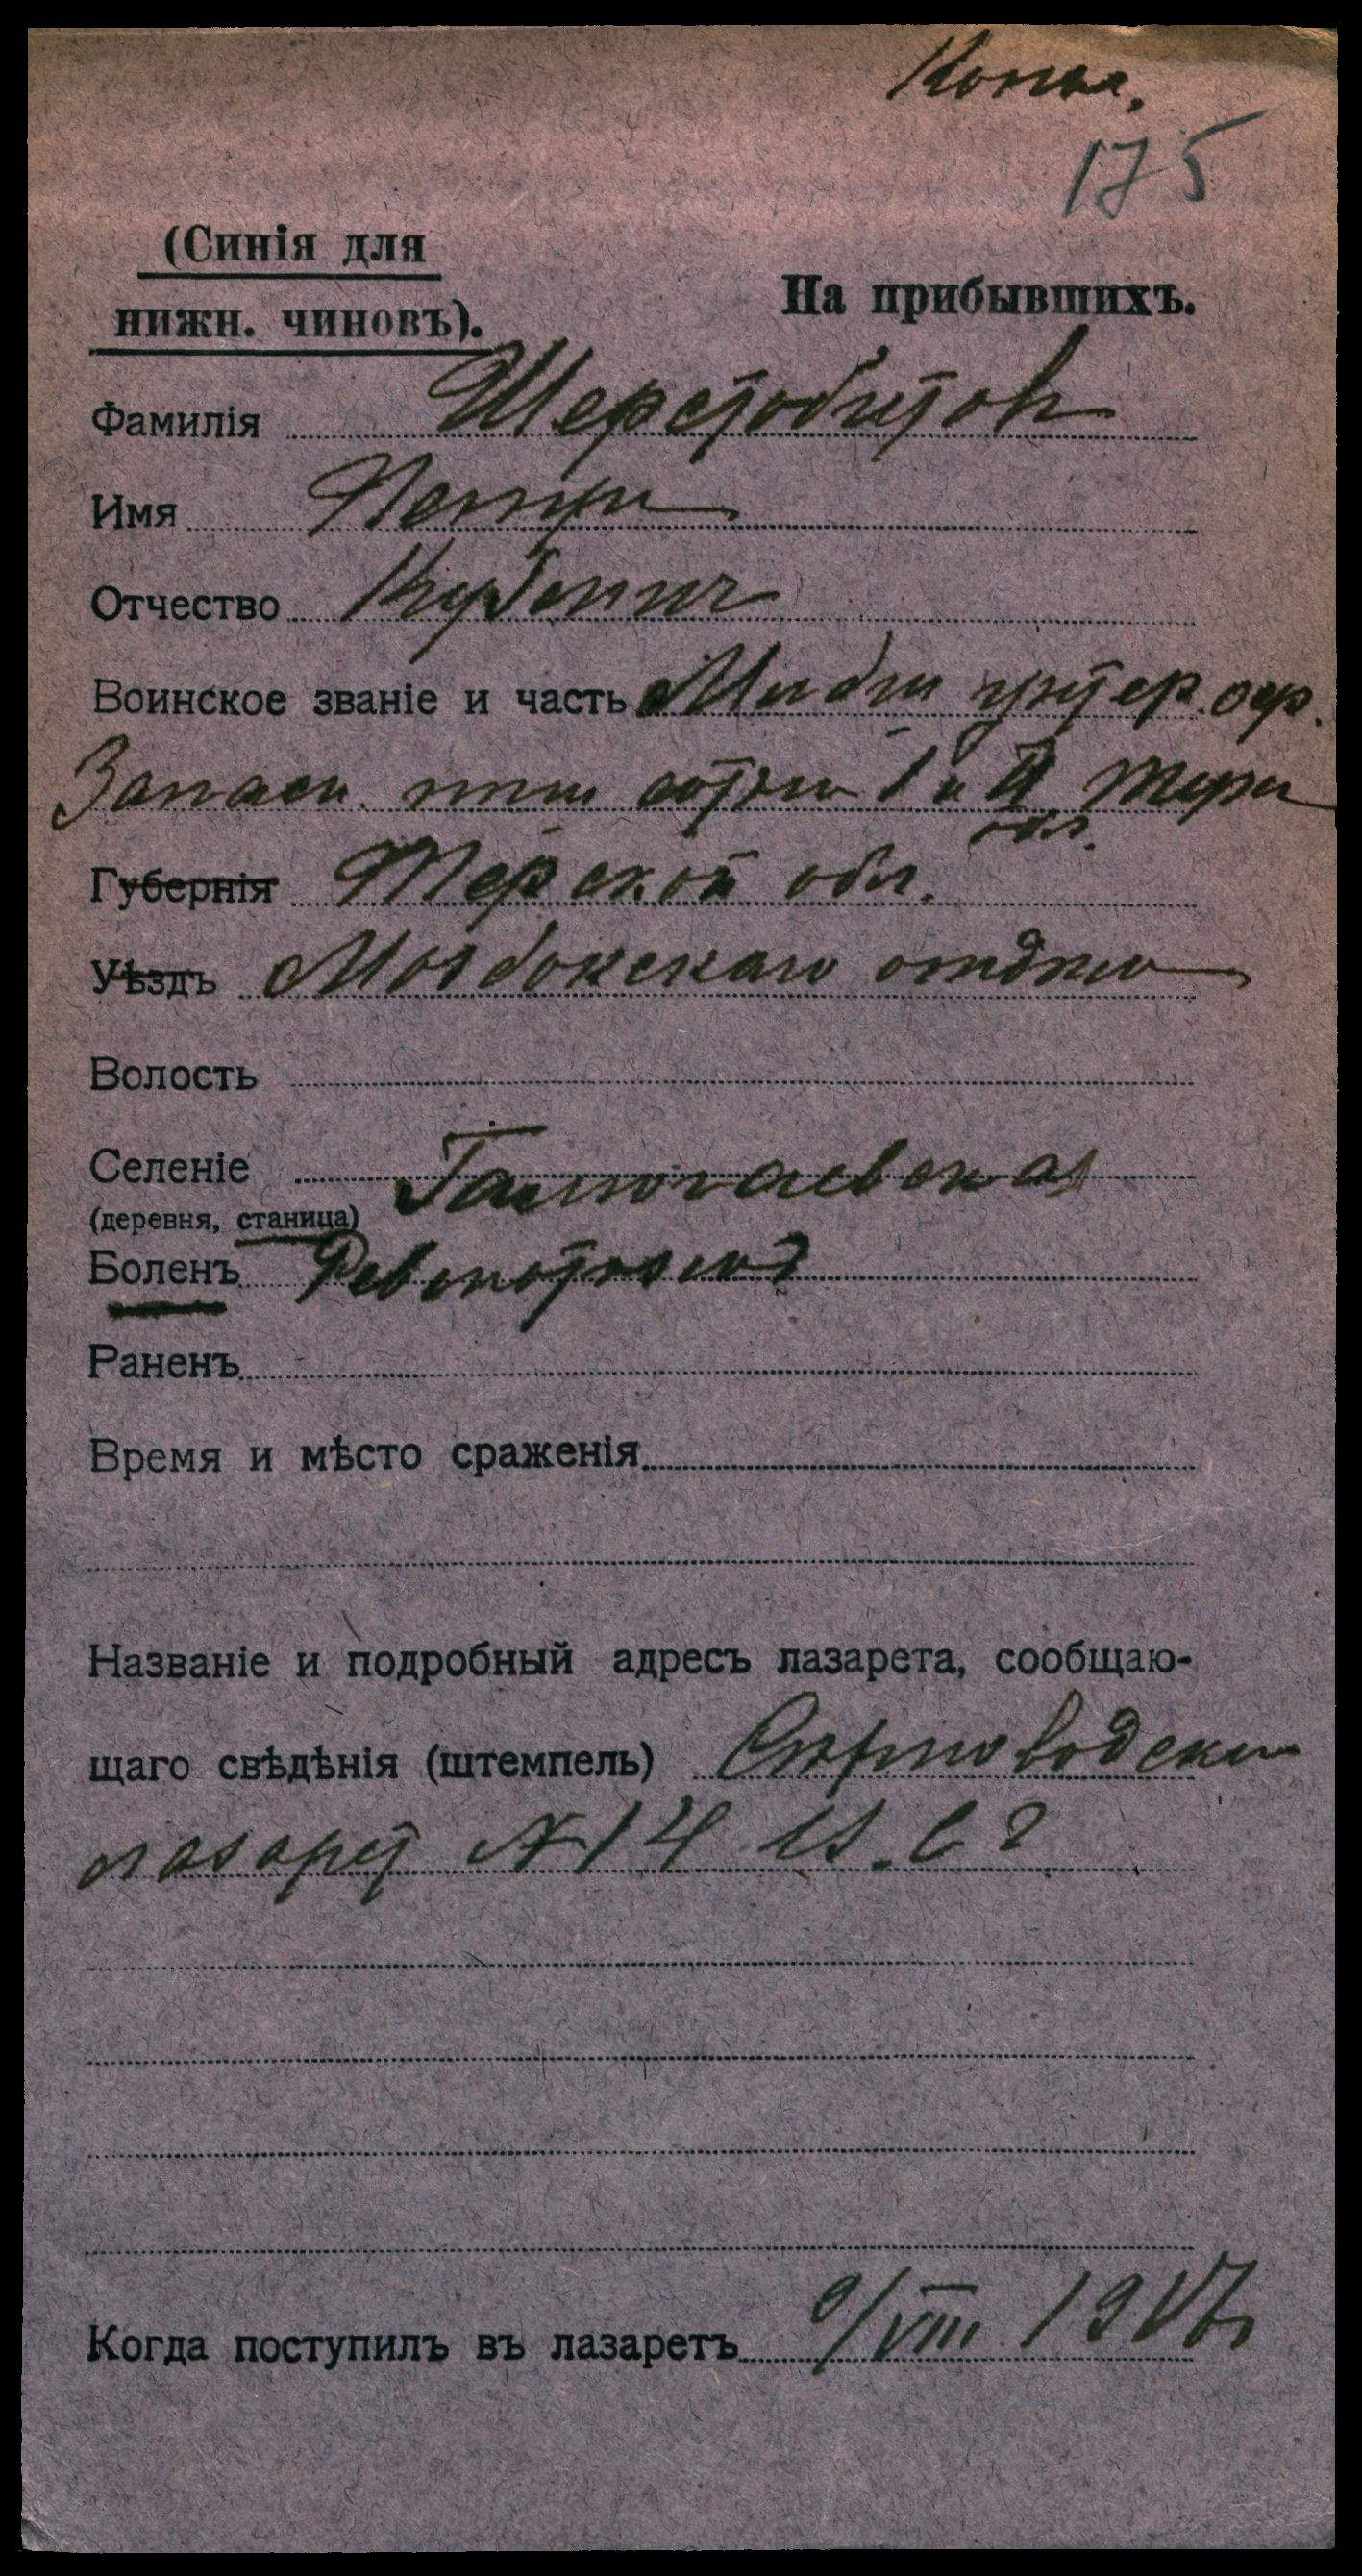 Копія.
175
(Синія для
нижн. чиновъ).
На прибывшихъ.
Фамилія Шерстобитов
Имя Петръ
Отчество
Воинское званіе и часть Младш унтер. оф.
Запасн. сотни 1 и II Терск
обл.
Губернія Терской обл.
Уѣздъ Моздокскаго отдела
Волость
Селеніе Галюгаевская
(деревня, станица)
Боленъ Ревматизмъ
Раненъ
Время и мѣсто сраженія
Названіе и подробный адресъ лазарета, сообщаю-
щаго свѣдѣнія (штемпель) Серноводский
лазарет № 14 В. С. Г
Когда поступилъ въ лазаретъ 9/VIII 1917